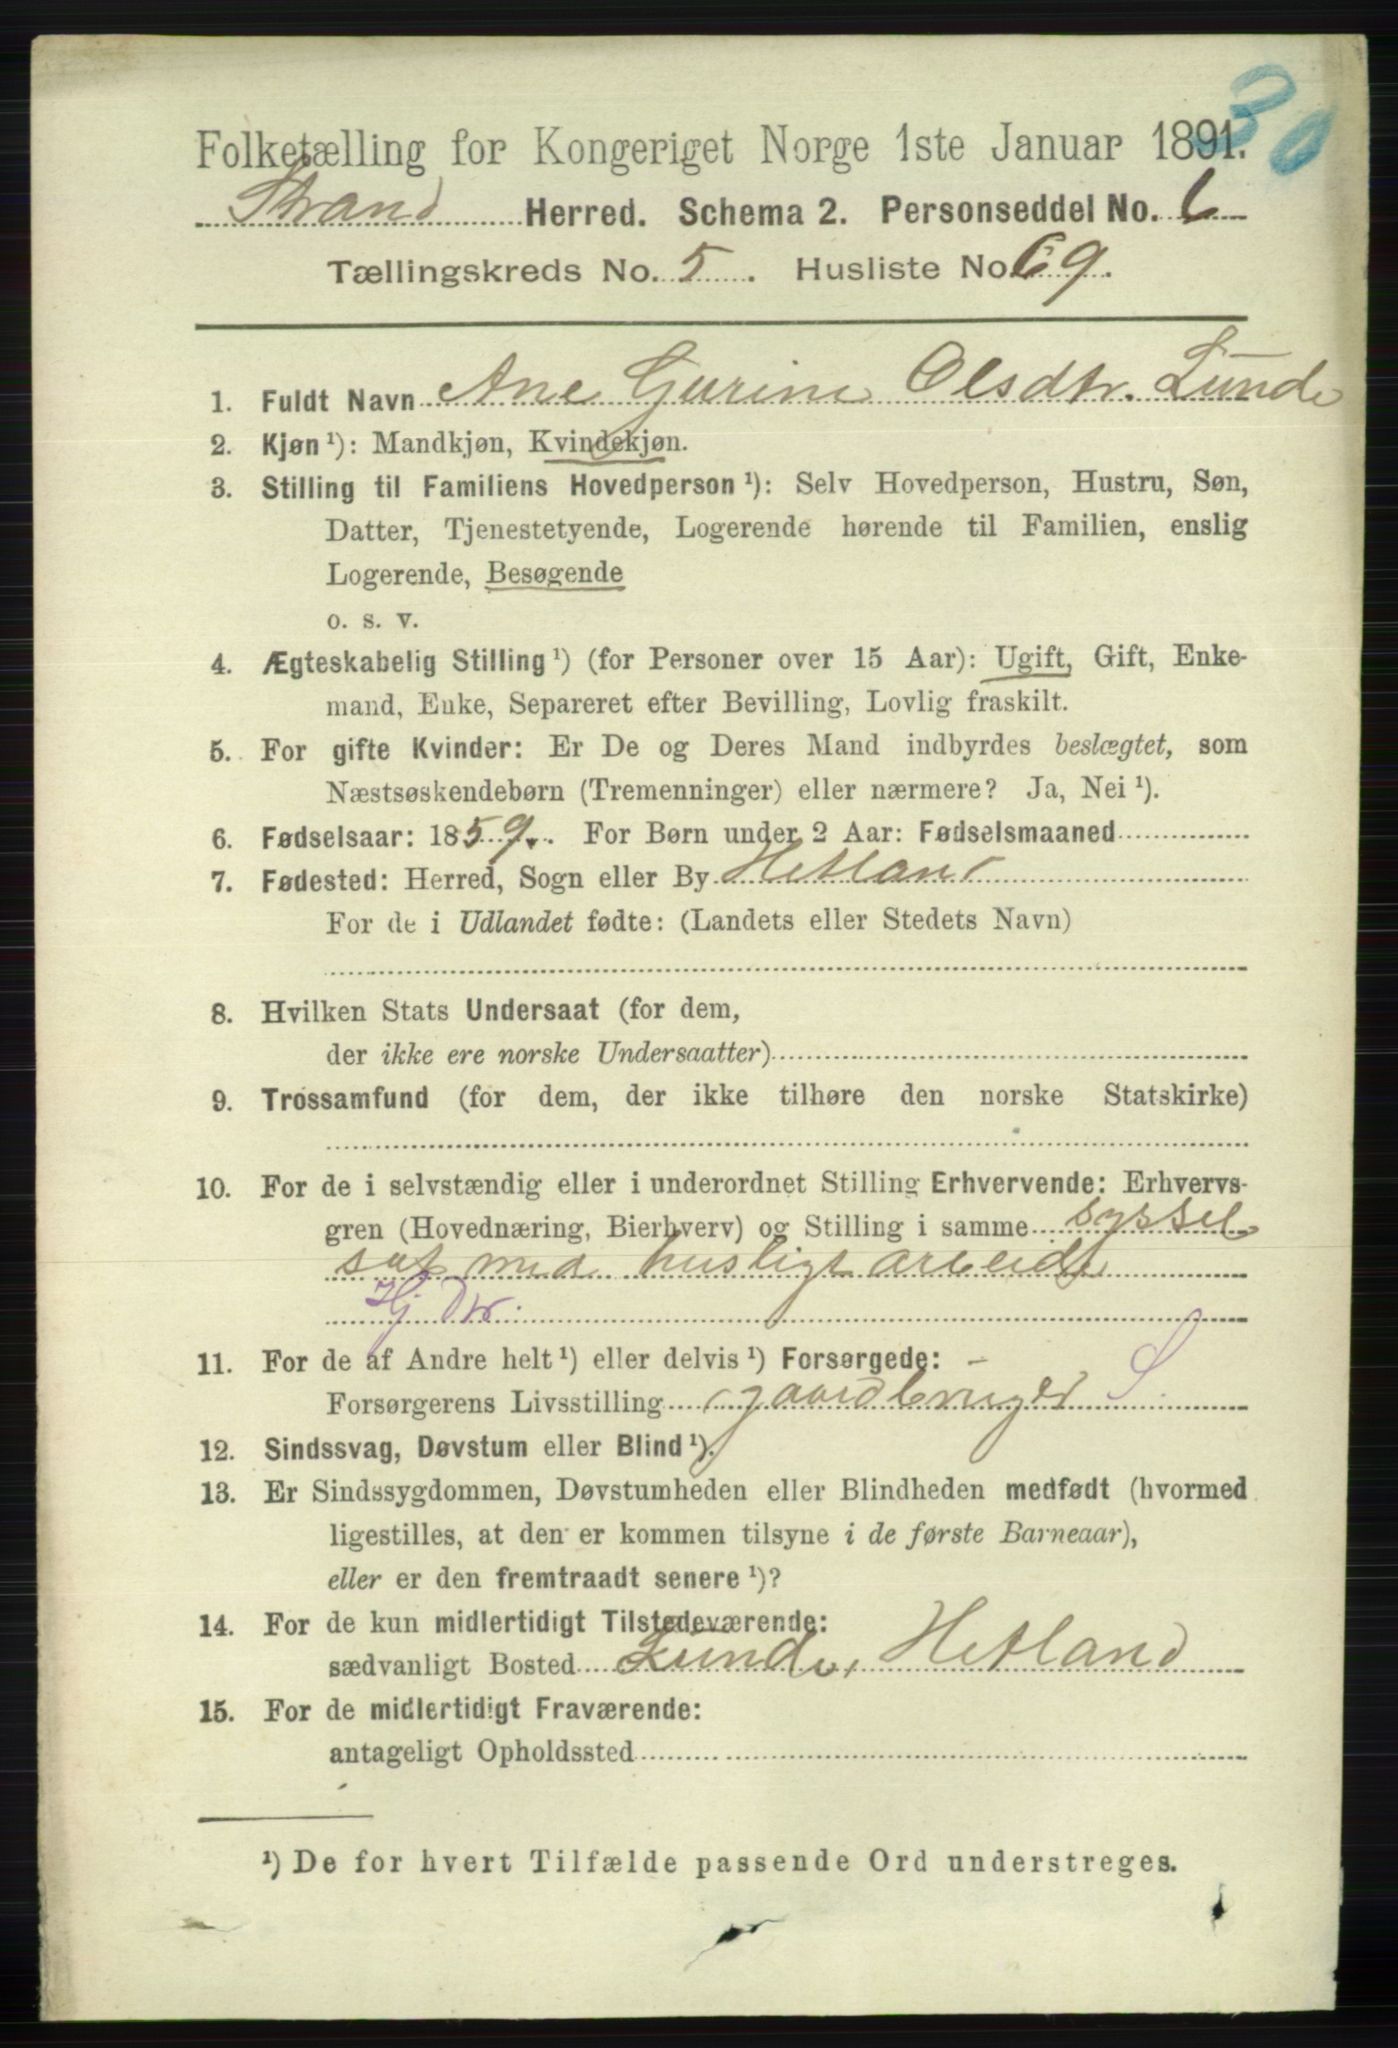 30
Folketælling for Kongeriget Norge 1ste Januar 1891.
Strand Herred. Schema 2. Personseddel No. 6
Tællingskreds No. 5. Husliste No. 69.
1. Fuldt Navn Ane Gurine Olsdtr. Lunde
2. Kjøn ¹): Mandkjøn, Kvindekjøn.
3. Stilling til Familiens Hovedperson ¹): Selv Hovedperson, Hustru, Søn,
Datter, Tjenestetyende, Logerende hørende til Familien, enslig
Logerende, Besøgende
o. s. v.
4. Ægteskabelig Stilling ¹) (for Personer over 15 Aar): Ugift, Gift, Enke-
mand, Enke, Separeret efter Bevilling, Lovlig fraskilt.
5. For gifte Kvinder: Er De og Deres Mand indbyrdes beslægtet, som
Næstsøskendebørn (Tremenninger) eller nærmere? Ja, Nei ¹).
6. Fødselsaar: 1859. For Børn under 2 Aar: Fødselsmaaned
7. Fødested: Herred, Sogn eller By Hetland
For de i Udlandet fødte: (Landets eller Stedets Navn)
8. Hvilken Stats Undersaat (for dem,
der ikke ere norske Undersaatter)
9. Trossamfund (for dem, der ikke tilhøre den norske Statskirke)
10. For de i selvstændig eller i underordnet Stilling Erhvervende: Erhvervs-
gren (Hovednæring, Bierhverv) og Stilling i samme syssel
sat med husligt arbeide
Hj Dtr.
11. For de af Andre helt ¹) eller delvis ¹) Forsørgede: -
Forsørgerens Livsstilling gaardbruger S.
12. Sindssvag, Døvstum eller Blind ¹).
13. Er Sindssygdommen, Døvstumheden eller Blindheden medfødt (hvormed
ligestilles, at den er kommen tilsyne i de første Barneaar),
eller er den fremtraadt senere ¹)?
14. For de kun midlertidigt Tilstedeværende:
sædvanligt Bosted Lunde, Hetland
15. For de midlertidigt Fraværende:
antageligt Opholdssted
¹) De for hvert Tilfælde passende Ord understreges.